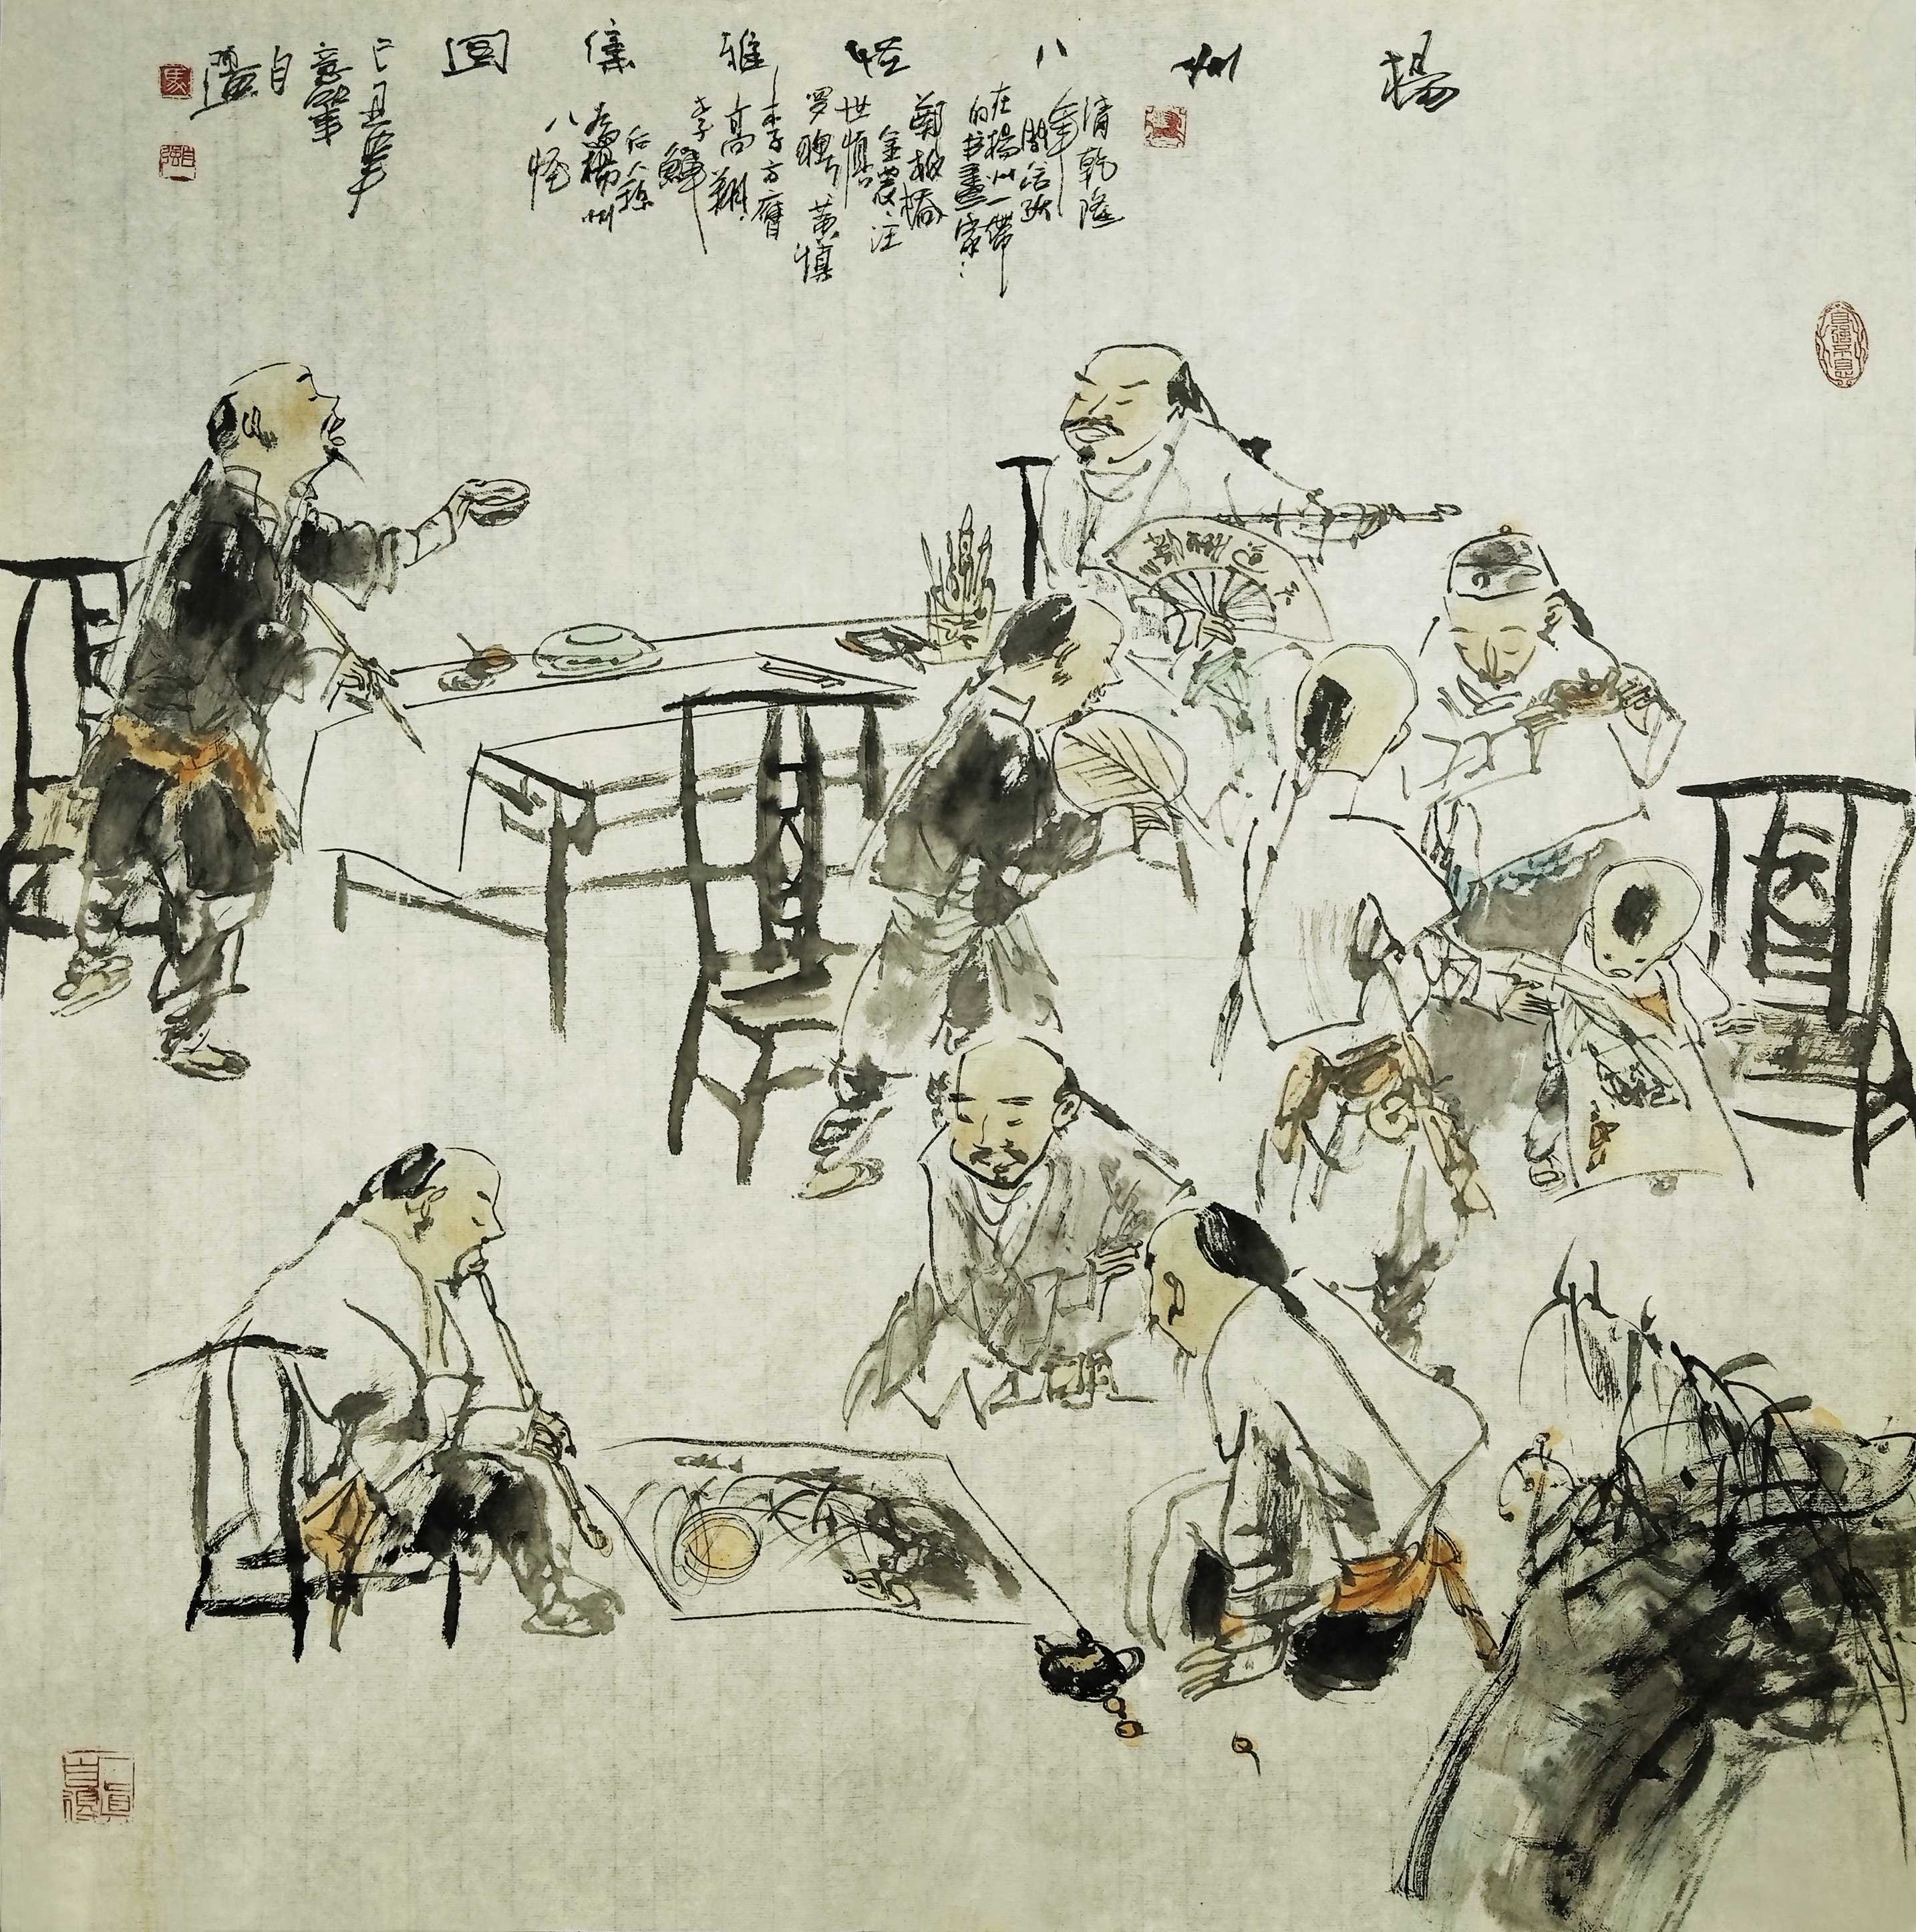 揚州八怪雅集圖
清乾隆
年
間活跃
在揚州一帶
的书畫家：
鄭板橋
金農、汪
世慎
罗聘、黄慎
李方膺
高翔、
李鱓
后人称
為揚州
八怪
己丑
自强
自强不息